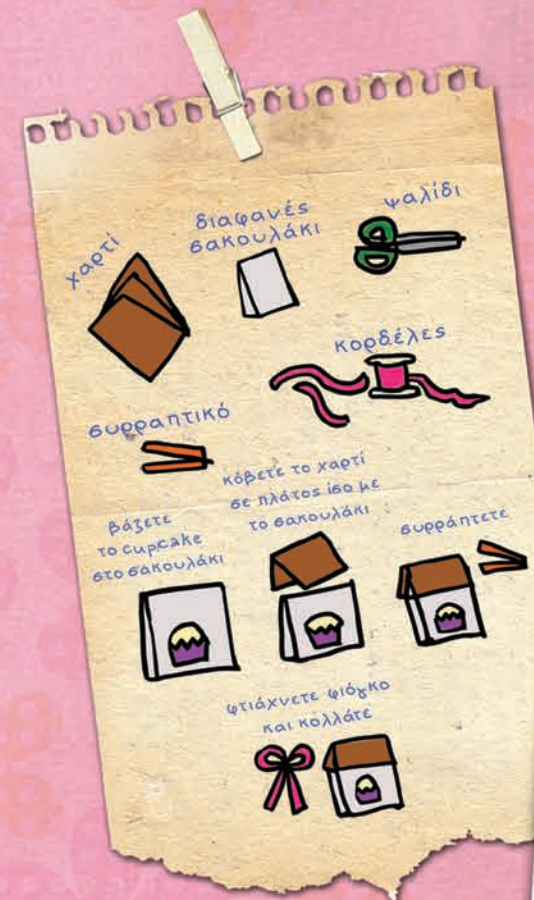 χαρτί
διαφανές
σακουλάκι
ψαλίδι
κορδέλες
συρραπτικό
βάζετε
το cupcake
στο σακουλάκι
κόβετε το χαρτί
σε πλάτος ίσο με
το σακουλάκι
συρράπτετε
φτιάχνετε φιόγκο
και κολλάτε